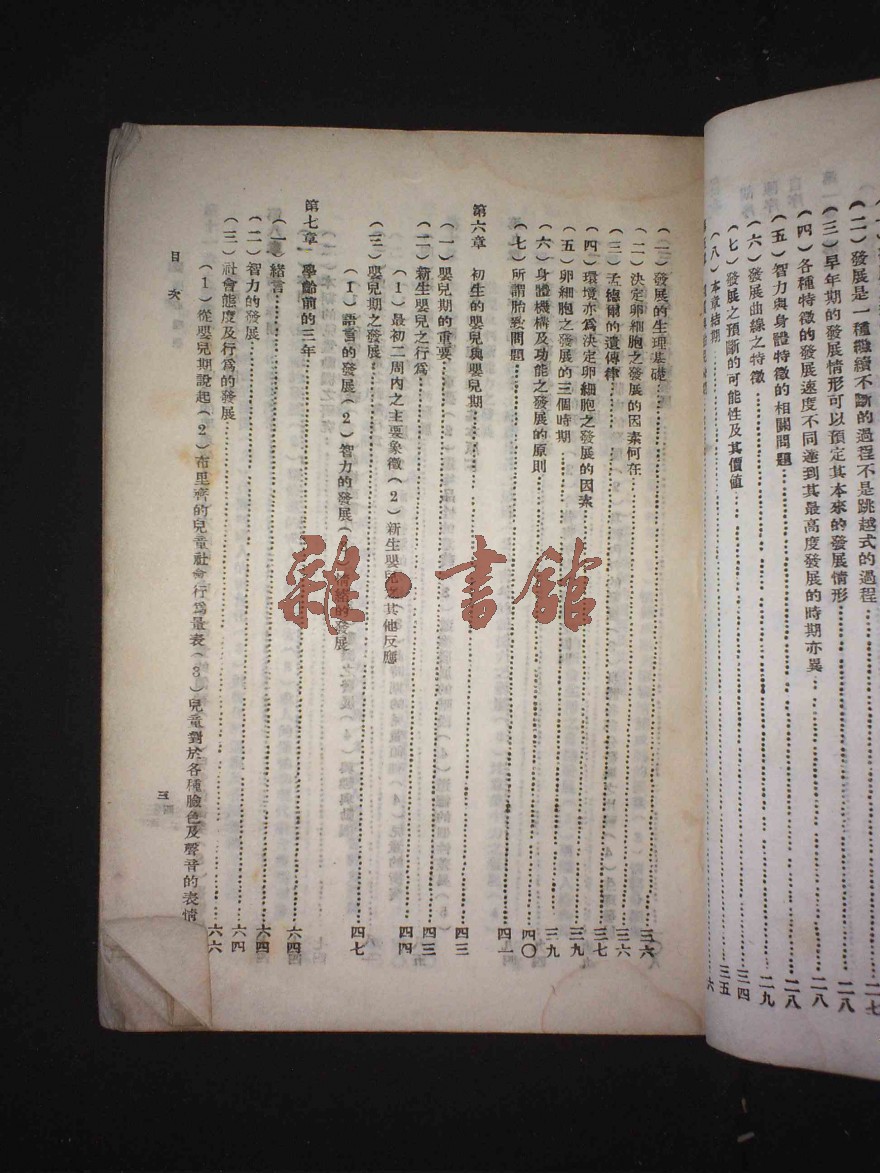 (二)發展是一種繼續不斷的過程不是跳越式的過程……二七
(三)早年期的發展情形可以預定其本來的發展情形……二八
(四)各種特徵的發展速度不同達到其最高度發展的時期亦異……二八
(五)智力與身體特徵的相關問題……二八
(六)發展曲線之特徵……二九
(七)發展之預斷的可能性及其價值……三四
(八)本章結論……三五
(一)發展的生理基礎……三六
(二)決定卵細胞之發展的因素何在……三六
(三)孟德爾的遺傳律……三七
(四)環境亦爲決定卵細胞之發展的因素……三九
(五)卵細胞之發展的三個時期……三九
(六)身體機構及功能之發展的原則……四〇
(七)所謂胎教問題……四一
第六章 初生的嬰兒與嬰兒期……四三
(一)嬰兒期的重要……四三
(二)新生嬰兒之行爲……四四
(1)最初二周內之主要象徵(2)新生嬰兒之其他反應
(三)嬰兒期之發展……四七
(1)語言的發展(2)智力的發展(3)情緒的發展
第七章 學齡前的三年……六四
(一)緒言……六四
(二)智力的發展……六四
(三)社會態度及行爲的發展……六六
(1)從嬰兒期說起(2)布里齊的兒童社會行爲量表(3)兒童對於各種臉色及聲音的表情
目次
三
雜·書館